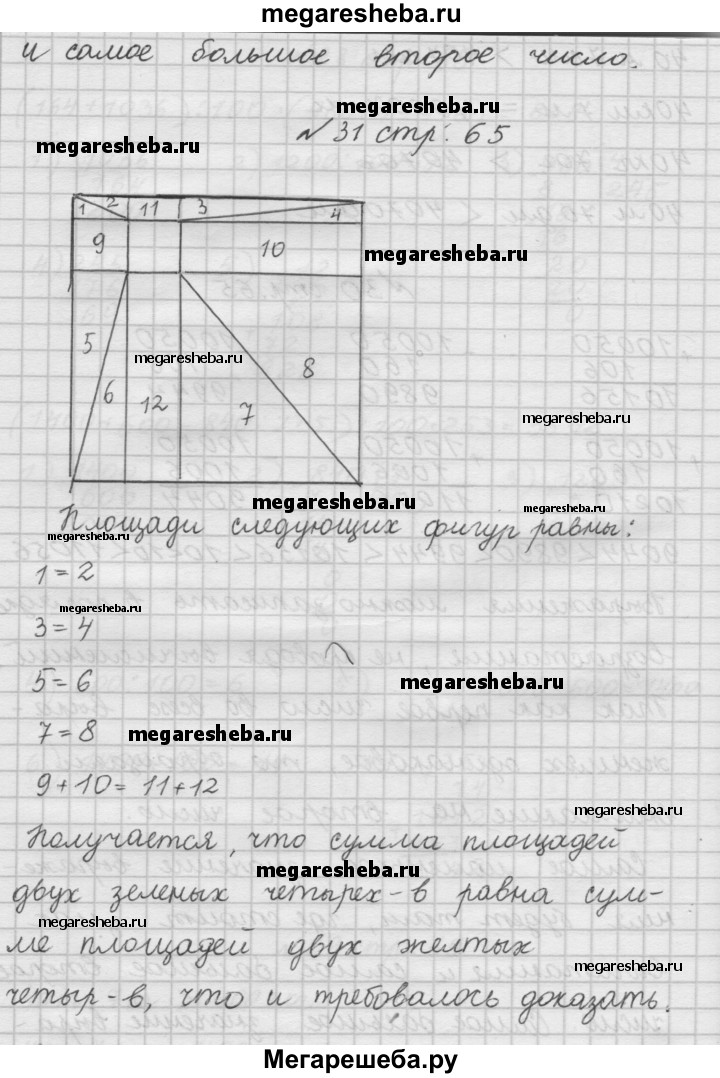 megaresheba.ru
и самое большое второе число.
megaresheba.ru
№31 стр. 65
megaresheba.ru
1 2 11 3 4
9 10
megaresheba.ru
5 megaresheba.ru 8
6 12 7
megaresheba.ru
megaresheba.ru
megaresheba.ru
Площади следующих фигур равны:
megaresheba.ru
1 = 2
megaresheba.ru
3 = 4
5 = 6
megaresheba.ru
7 = 8
megaresheba.ru
9 + 10 = 11 + 12
megaresheba.ru
Получается, что сумма площадей
megaresheba.ru
двух зеленых четырех-в равна сум-
megaresheba.ru
ме площадей двух желтых
megaresheba.ru
четыр-в, что и требовалось доказать.
megaresheba.ru
Мегарешеба.ру